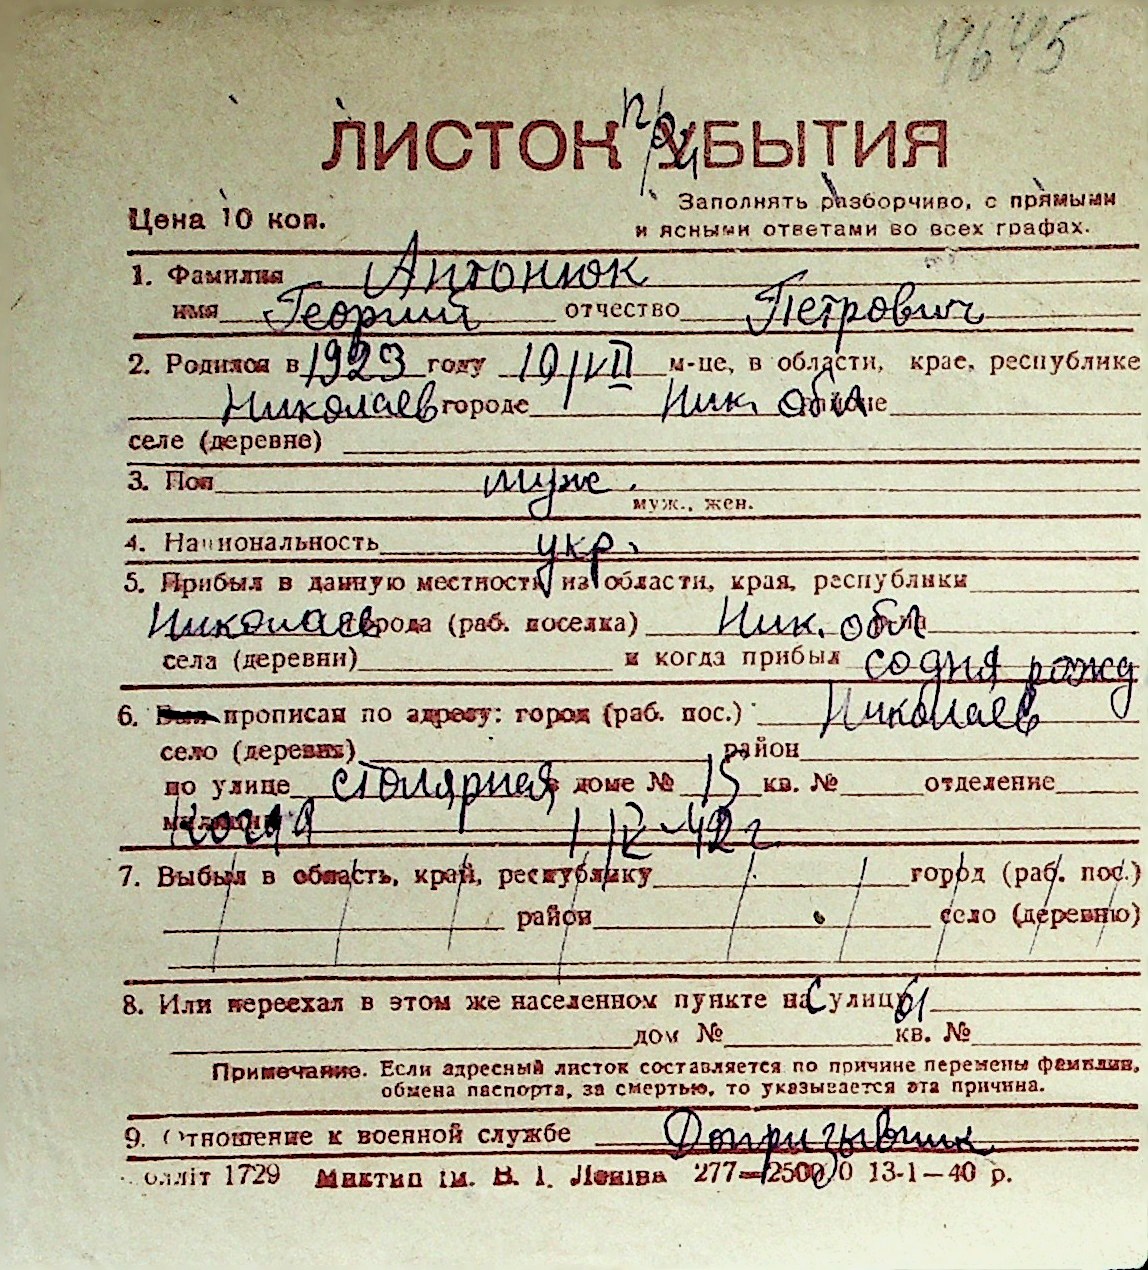 4645
ЛИСТОК при УБЫТИЯ
Цена 10 коп.
Заполнять разборчиво, с прямыми
и ясными ответами во всех графах.
1. Фамилия Антонюк
имя Георгий отчество Петрович
2. Родился в 1923 году 10/VII м-це, в области, крае, республике
Николаев городе Ник. обл районе
селе (деревне)
3. Пол муж.
муж., жен.
4. Национальность укр.
5. Прибыл в данную местность из области, края, республики
Николаев города (раб. поселка) Ник. обл
села (деревни) и когда прибыл со дня рожд
6. Был прописан по адресу: город (раб. пос.) Николаев
село (деревня) район
по улице столярная в доме № 15 кв. № отделение
милиции когда 1/IX-42 г
7. Выбыл в область, край, республику город (раб. пос.)
район село (деревню)
8. Или переехал в этом же населенном пункте на с улицу ы
дом № кв. №
Примечание. Если адресный листок составляется по причине перемены фамилии,
обмена паспорта, за смертью, то указывается эта причина.
9. Отношение к военной службе Допризывник
олліт 1729 Миктип ім. В. І. Леніна 277—25000 13-1—40 р.